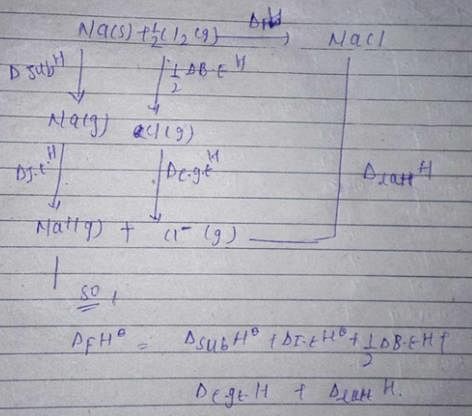 Na(s) + ½Cl2(g) ΔfH NaCl
ΔsubH ½ΔB·EH
Na(g) Cl(g)
ΔI·EH Δe·gEH ΔlattH
Na+(g) + Cl⁻(g)
so,
ΔfH⁰ = ΔsubH⁰ + ΔI·EH⁰ + ½ΔB·EH +
Δe·gEH + ΔlattH.